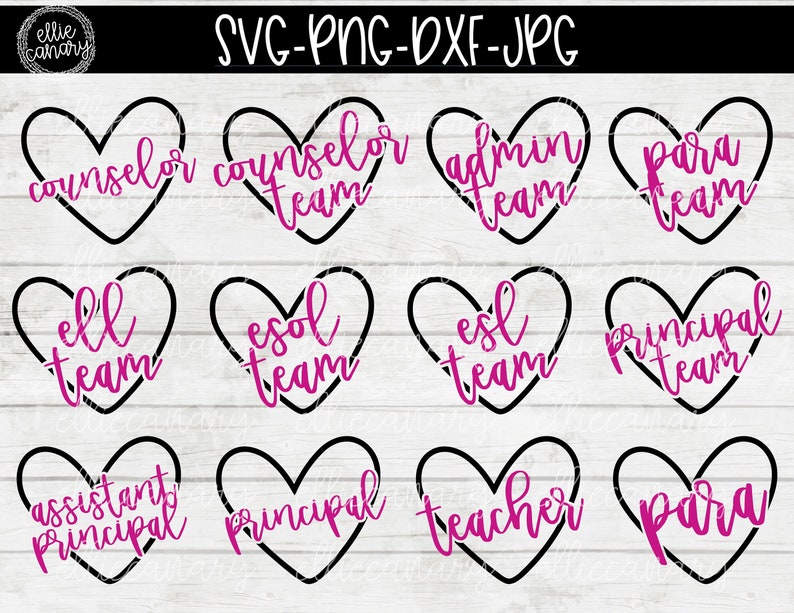 ellie
canary
SVG-PNG-DXF-JPG
counselor
counselor
team
admin
team
para
team
ell
team
esol
team
esl
team
principal
team
assistant
principal
principal
teacher
para
elliecanary
elliecanary
elliecanary